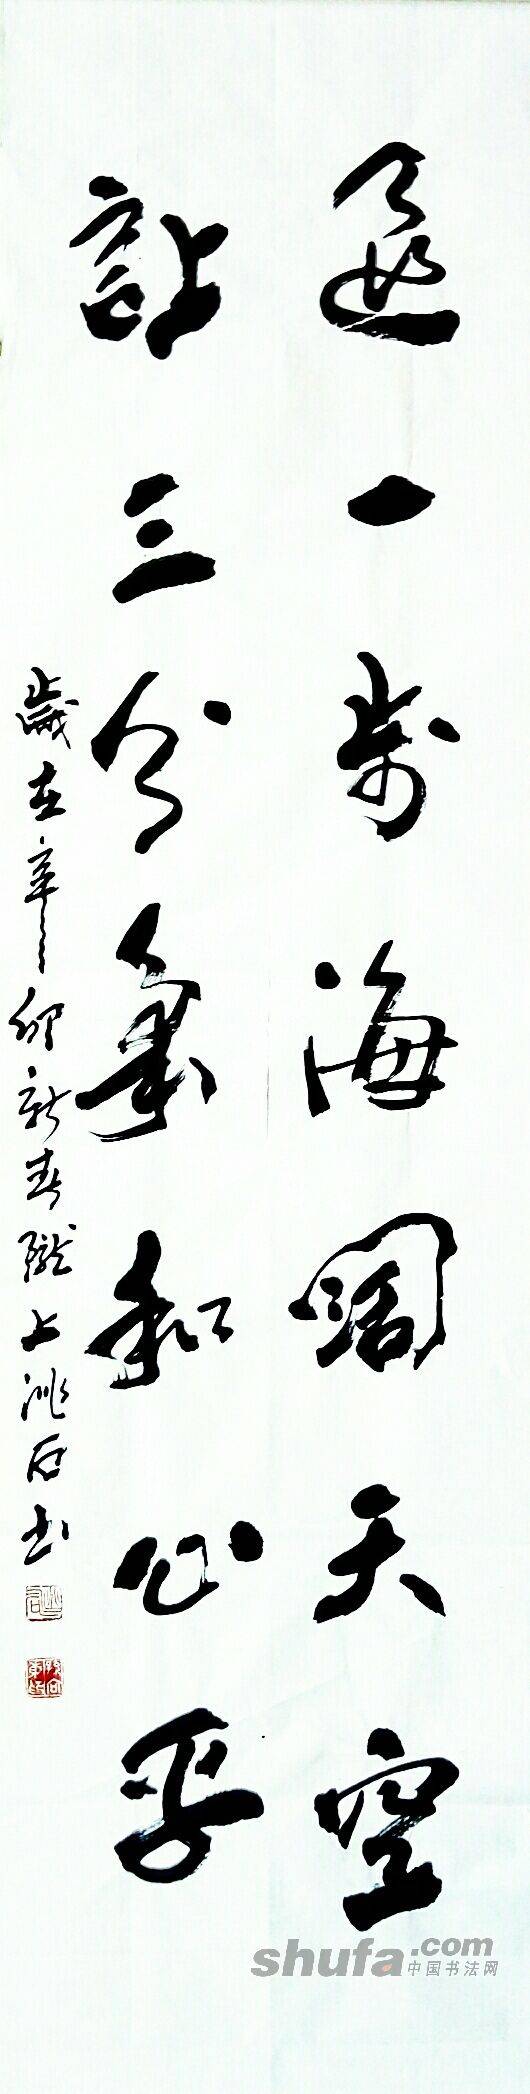 退一步海阔天空
让三分氣和心平
歲在辛卯新春隴上洮石书
shufa.com
中国书法网